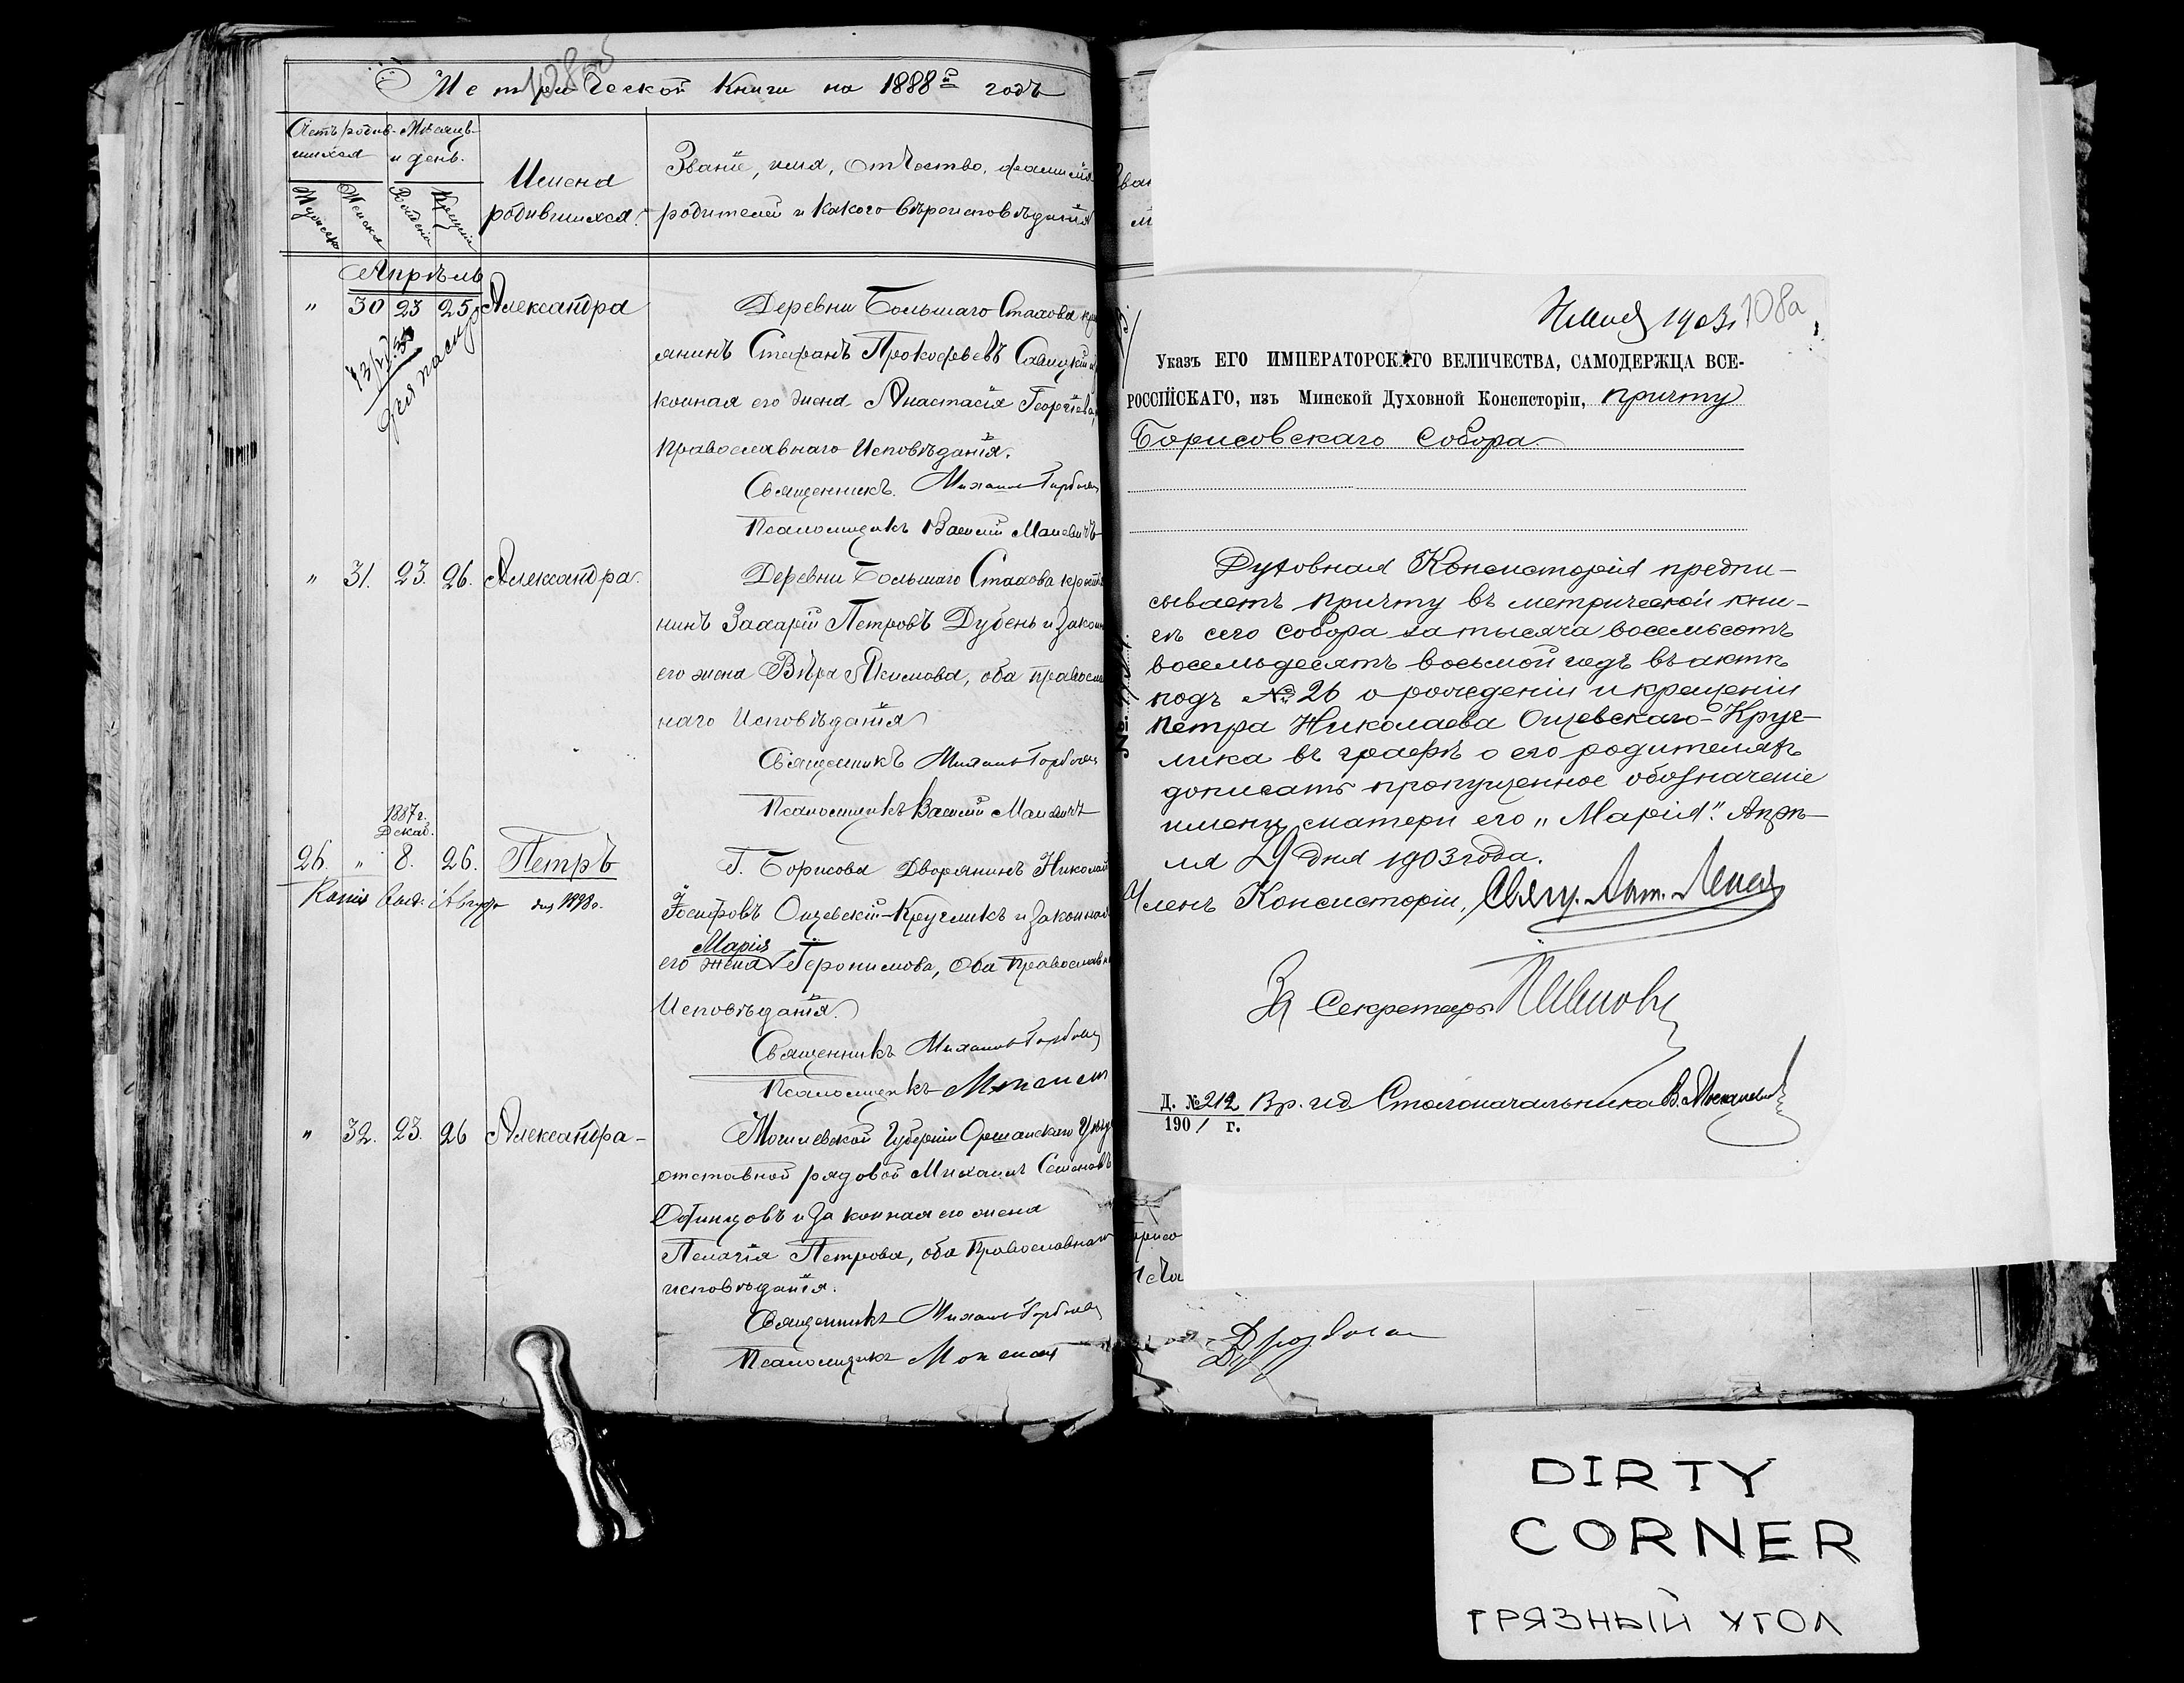 Метрической Книги на 1888й годъ
Счетъ родив-
шихся
Мѣсяцъ
и день.
Мужеска
Женска
Рожденія
Крещенія
Имена
родившихся.
Званіе, имя, Отчество, фамилія
родителей и какого вѣроисповѣданія
Апрѣль
" 30 23 25 Александра
Деревни Большаго Стахова
янинъ Стефанъ Прокофьевъ Савицкій
конная его жена Анастасія Георгіева,
Православнаго Исповѣданія.
Священникъ Михаилъ
Псаломщикъ Василій Манкевичъ
" 31. 23. 26. Александра.
Деревни Большаго Стахова
нинъ Захарій Петровъ Дубень и закон
его жена Вѣра Якимова, оба православ
наго Исповѣданія
Священникъ Михаилъ
Псаломщикъ Василій
1887 г.
Декаб.
26. " 8. 26. Петръ
Г. Борисова Дворянинъ Николай
Іосифовъ Ощевскій-Кругликъ и законная
Марія
его жена Іеронимова, Оба православн
Исповѣданія.
Священникъ Михаилъ
Псаломщикъ
" 32. 23. 26 Александра-
Могилевской Губерніи Оршанскаго Уѣзд
отставной рядовой Михаилъ Семеновъ
и законная его жена
Пелагія Петрова, оба Православнаго
исповѣданія.
Священникъ Михаилъ
Псаломщикъ
1903 108а
Указъ ЕГО ИМПЕРАТОРСКАГО ВЕЛИЧЕСТВА, САМОДЕРЖЦА ВСЕ-
РОССІЙСКАГО, изъ Минской Духовной Консисторіи, причту
Борисовскаго собора
Духовная Консисторія предпи-
сываетъ причту въ метрической кни-
гѣ сего собора за тысяча восемьсотъ
восемьдесятъ восьмой годъ въ актѣ
подъ № 26 о рожденіи и крещеніи
Петра Николаева Ощевскаго-Круг-
лика въ графѣ о его родителяхъ
дописать пропущенное обозначеніе
имени матери его „Марія". Апрѣ-
ля 29 дня 1903 года.
Членъ Консисторіи, Свящ. Ант.
За Секретаря
Д. № 212 Вр. и д Столоначальника В.
1901 г.
DIRTY
CORNER
ГРЯЗНЫЙ УГОЛ